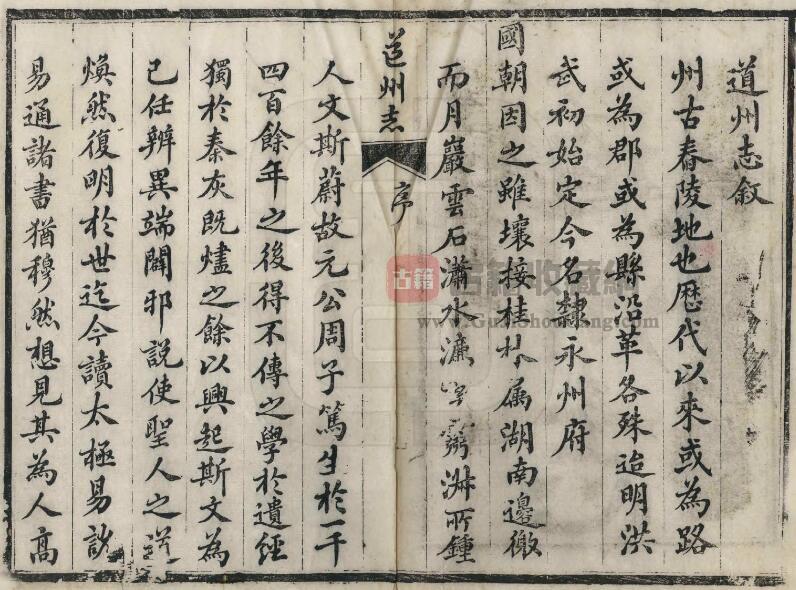 道州志敘
州古舂陵地也歷代以來或為路
或為郡或為縣沿革各殊迨明洪
武初始定今名隸永州府
國朝因之雖壤接桂林属湖南邊徼
而月巖雲石瀟水濂淑所鍾
道州志 序
人文斯蔚故元公周子篤生於一千
四百餘年之後得不傳之學於遺經
獨於秦灰既燼之餘以興起斯文為
己任辨異端闢邪說使聖人之道
煥然復明於世迄今讀太極易說
易通諸書猶穆然想見其為人高
古籍
古籍收藏網
www.GuJiShouCang.com